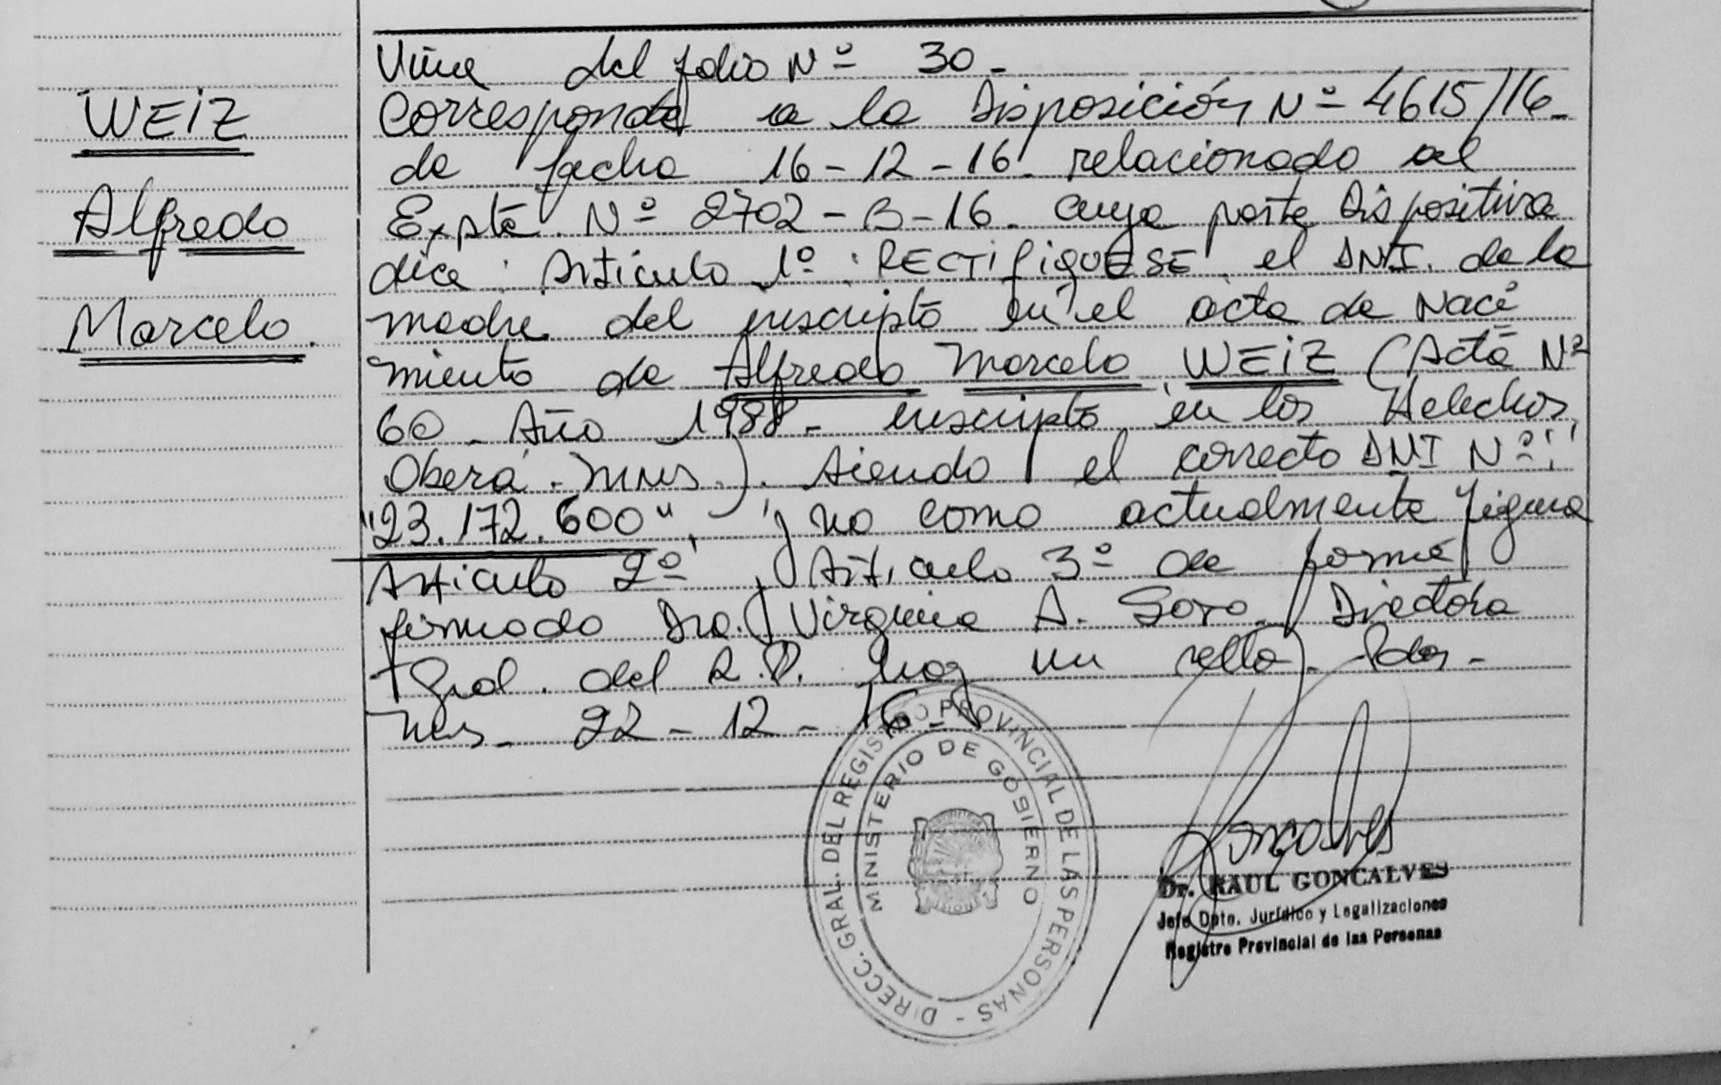 WEiZ
Alfredo
Marcelo.
Viene del folio Nº 30-
Corresponde a la Disposición Nº 4615/16-
de fecha 16-12-16 relacionado al
Expte. Nº 2702-B-16. cuya parte Dispositiva
dice: Artículo 1º: RECTIFIQUESE el DNI. de la
madre del inscripto en el acta de Naci
miento de Alfredo Marcelo WEiZ (Acta Nº
60 - Año 1988 - inscripto en los Helechos
Oberá - Mnes.). Siendo el correcto DNI Nº:
"23.172.600", y no como actualmente figura
Artículo 2º y Artículo 3º de forma
firmado Dra. Virginia A. Director
Gral. del R.P. hay un sello). Pdas-
Mnes- 22-12-16-
DIRECC. GRAL. DEL REGISTRO PROVINCIAL DE LAS PERSONAS -
MINISTERIO DE GOBIERNO
Goncalves
Dr. RAUL GONCALVES
Jefe Dpto. Jurídico y Legalizaciones
Registro Provincial de las Personas